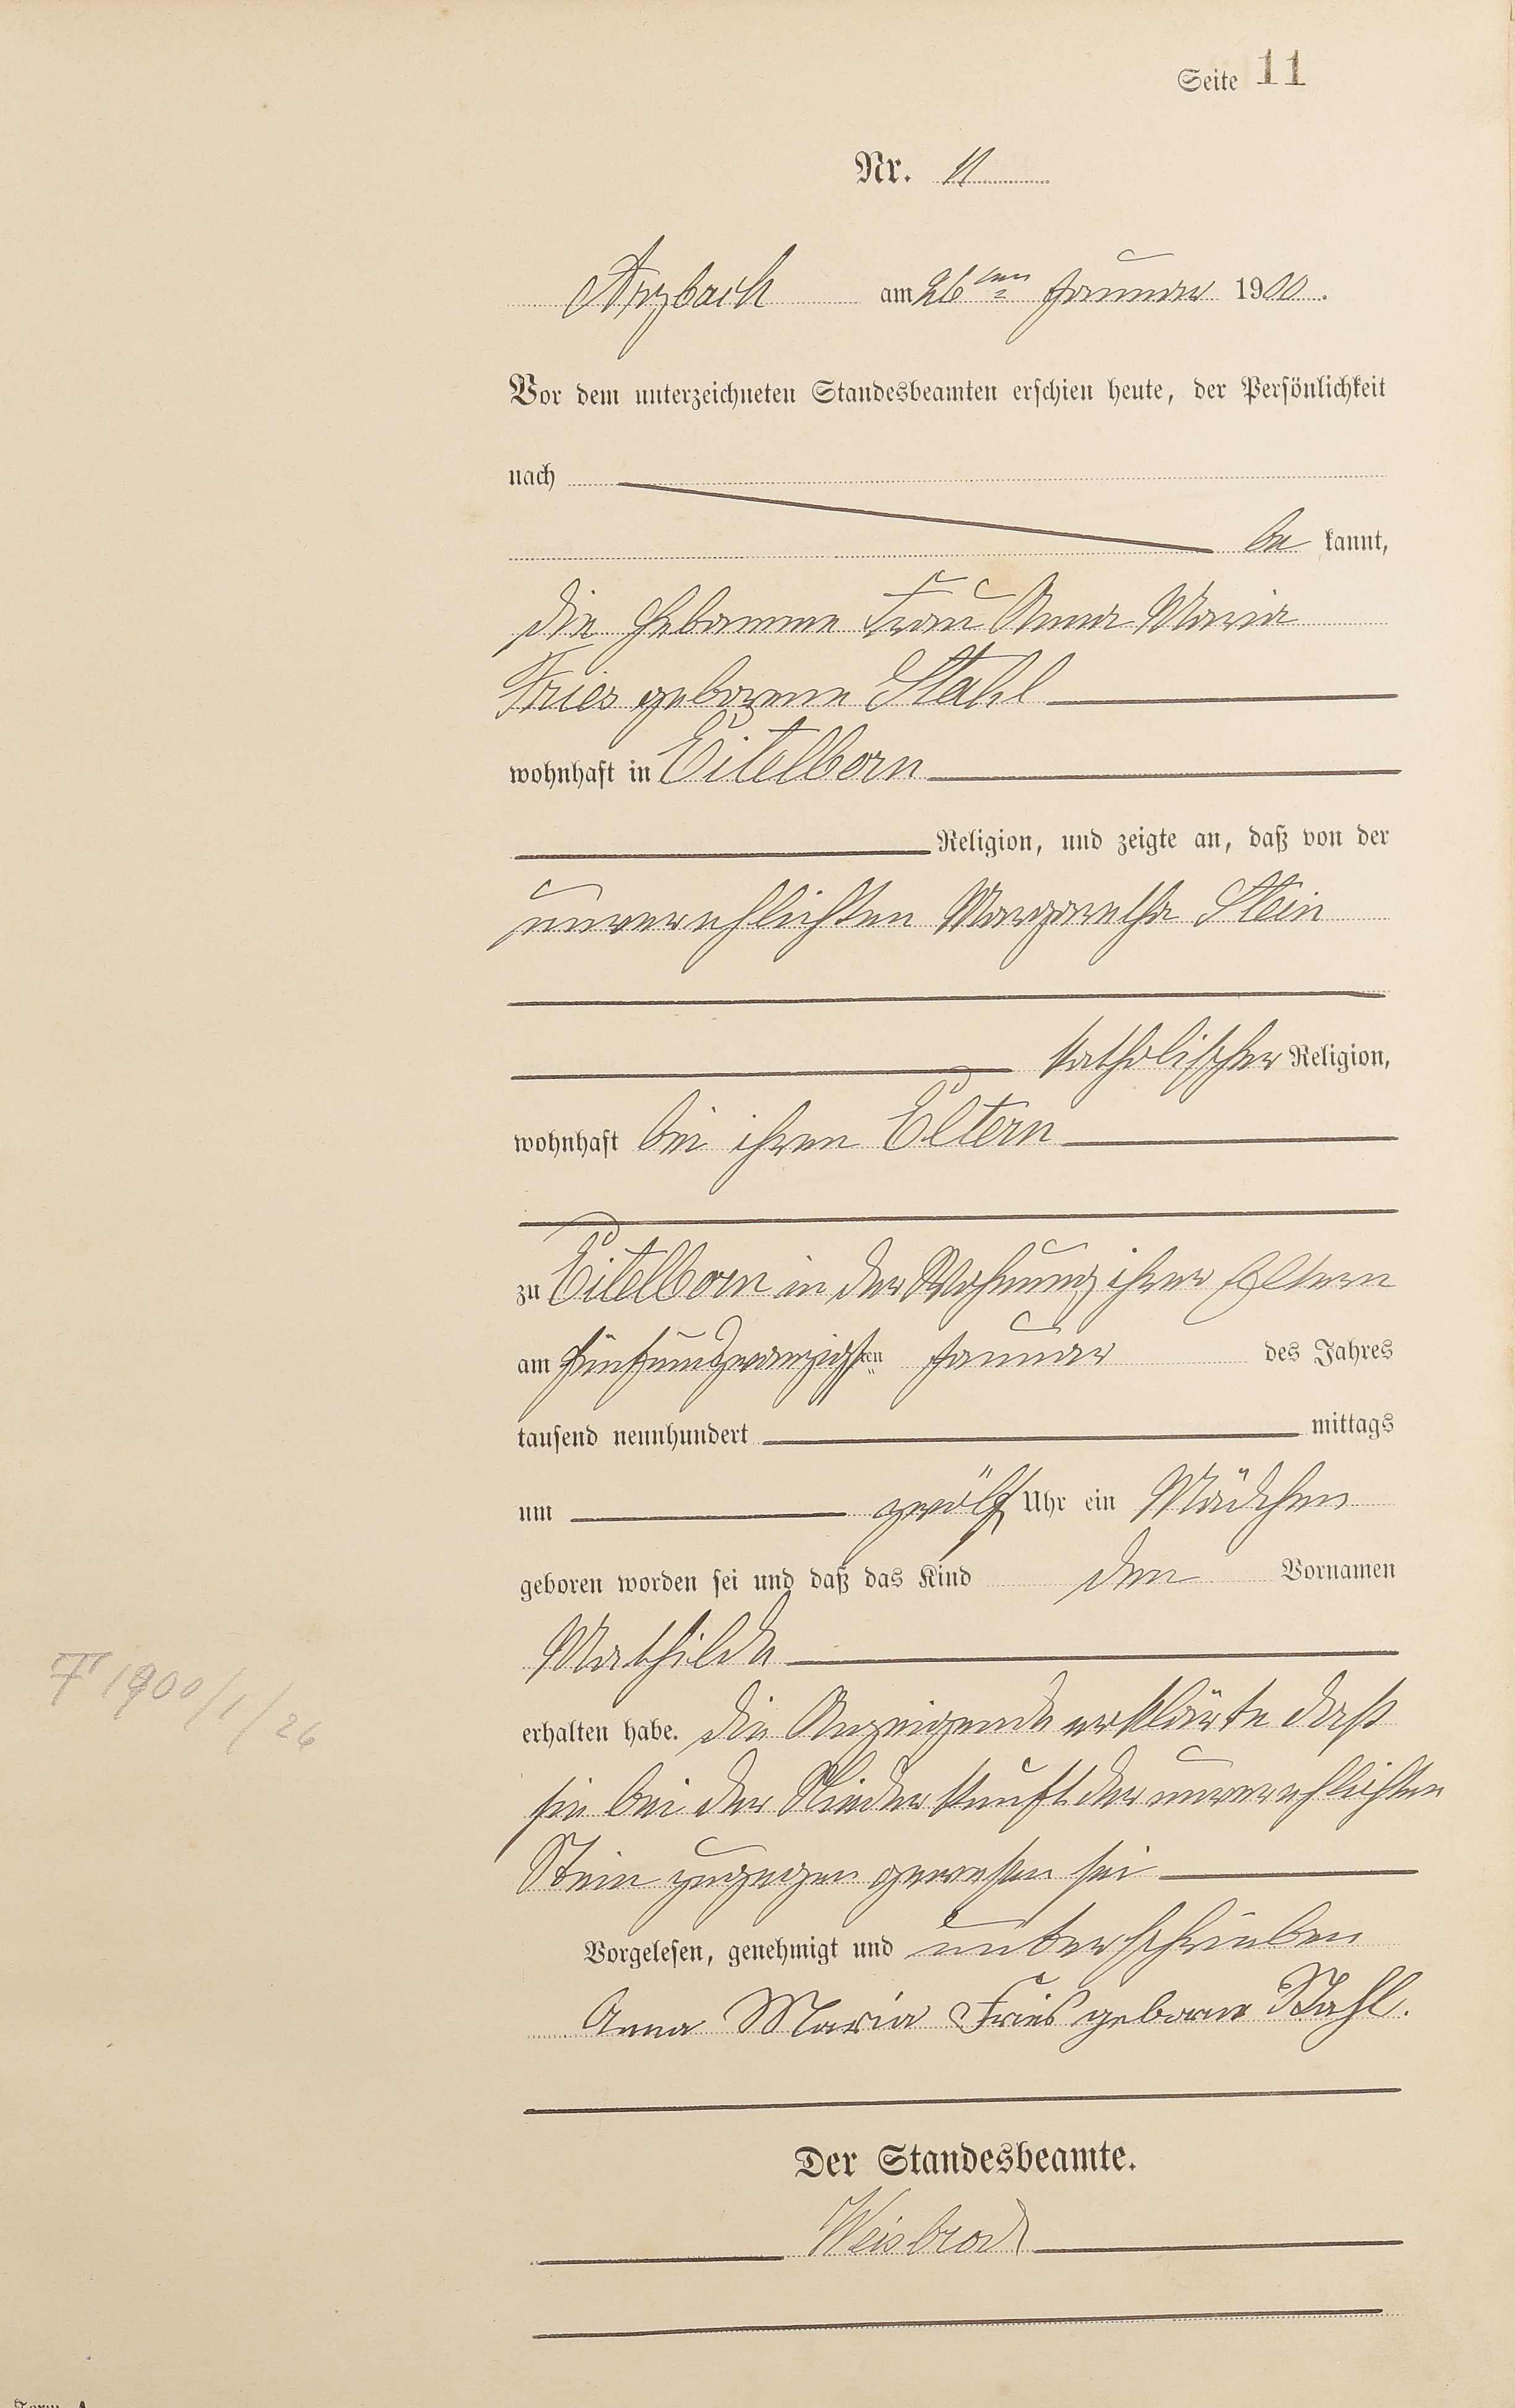 Seite 11
Nr. 11
Arzbach am 26ten Januar 1900.
Vor dem unterzeichneten Standesbeamten erschien heute, der Persönlichkeit
nach
be kannt,
die Hebamme Frau Anna Maria
Fries geborene Stahl
wohnhaft in Eitelborn
Religion, und zeigte an, daß von der
unverehlichten Margaretha Stein
katholischer Religion,
wohnhaft bei ihren Eltern
zu Eitelborn in der Wohnung ihrer Eltern
am fünfundzwanzigsten Januar des Jahres
tausend neunhundert mittags
um zwölf Uhr ein Mädchen
geboren worden sei und daß das Kind den Vornamen
Mathilde
erhalten habe. Die Anzeigende erklärte daß
sie bei der Niederkunft der unverehlichten
Stein zugegen gewesen sei
Vorgelesen, genehmigt und unterschrieben
Anna Maria Fries geborne Stahl.
Der Standesbeamte.
Weisbrod
1900/1/26